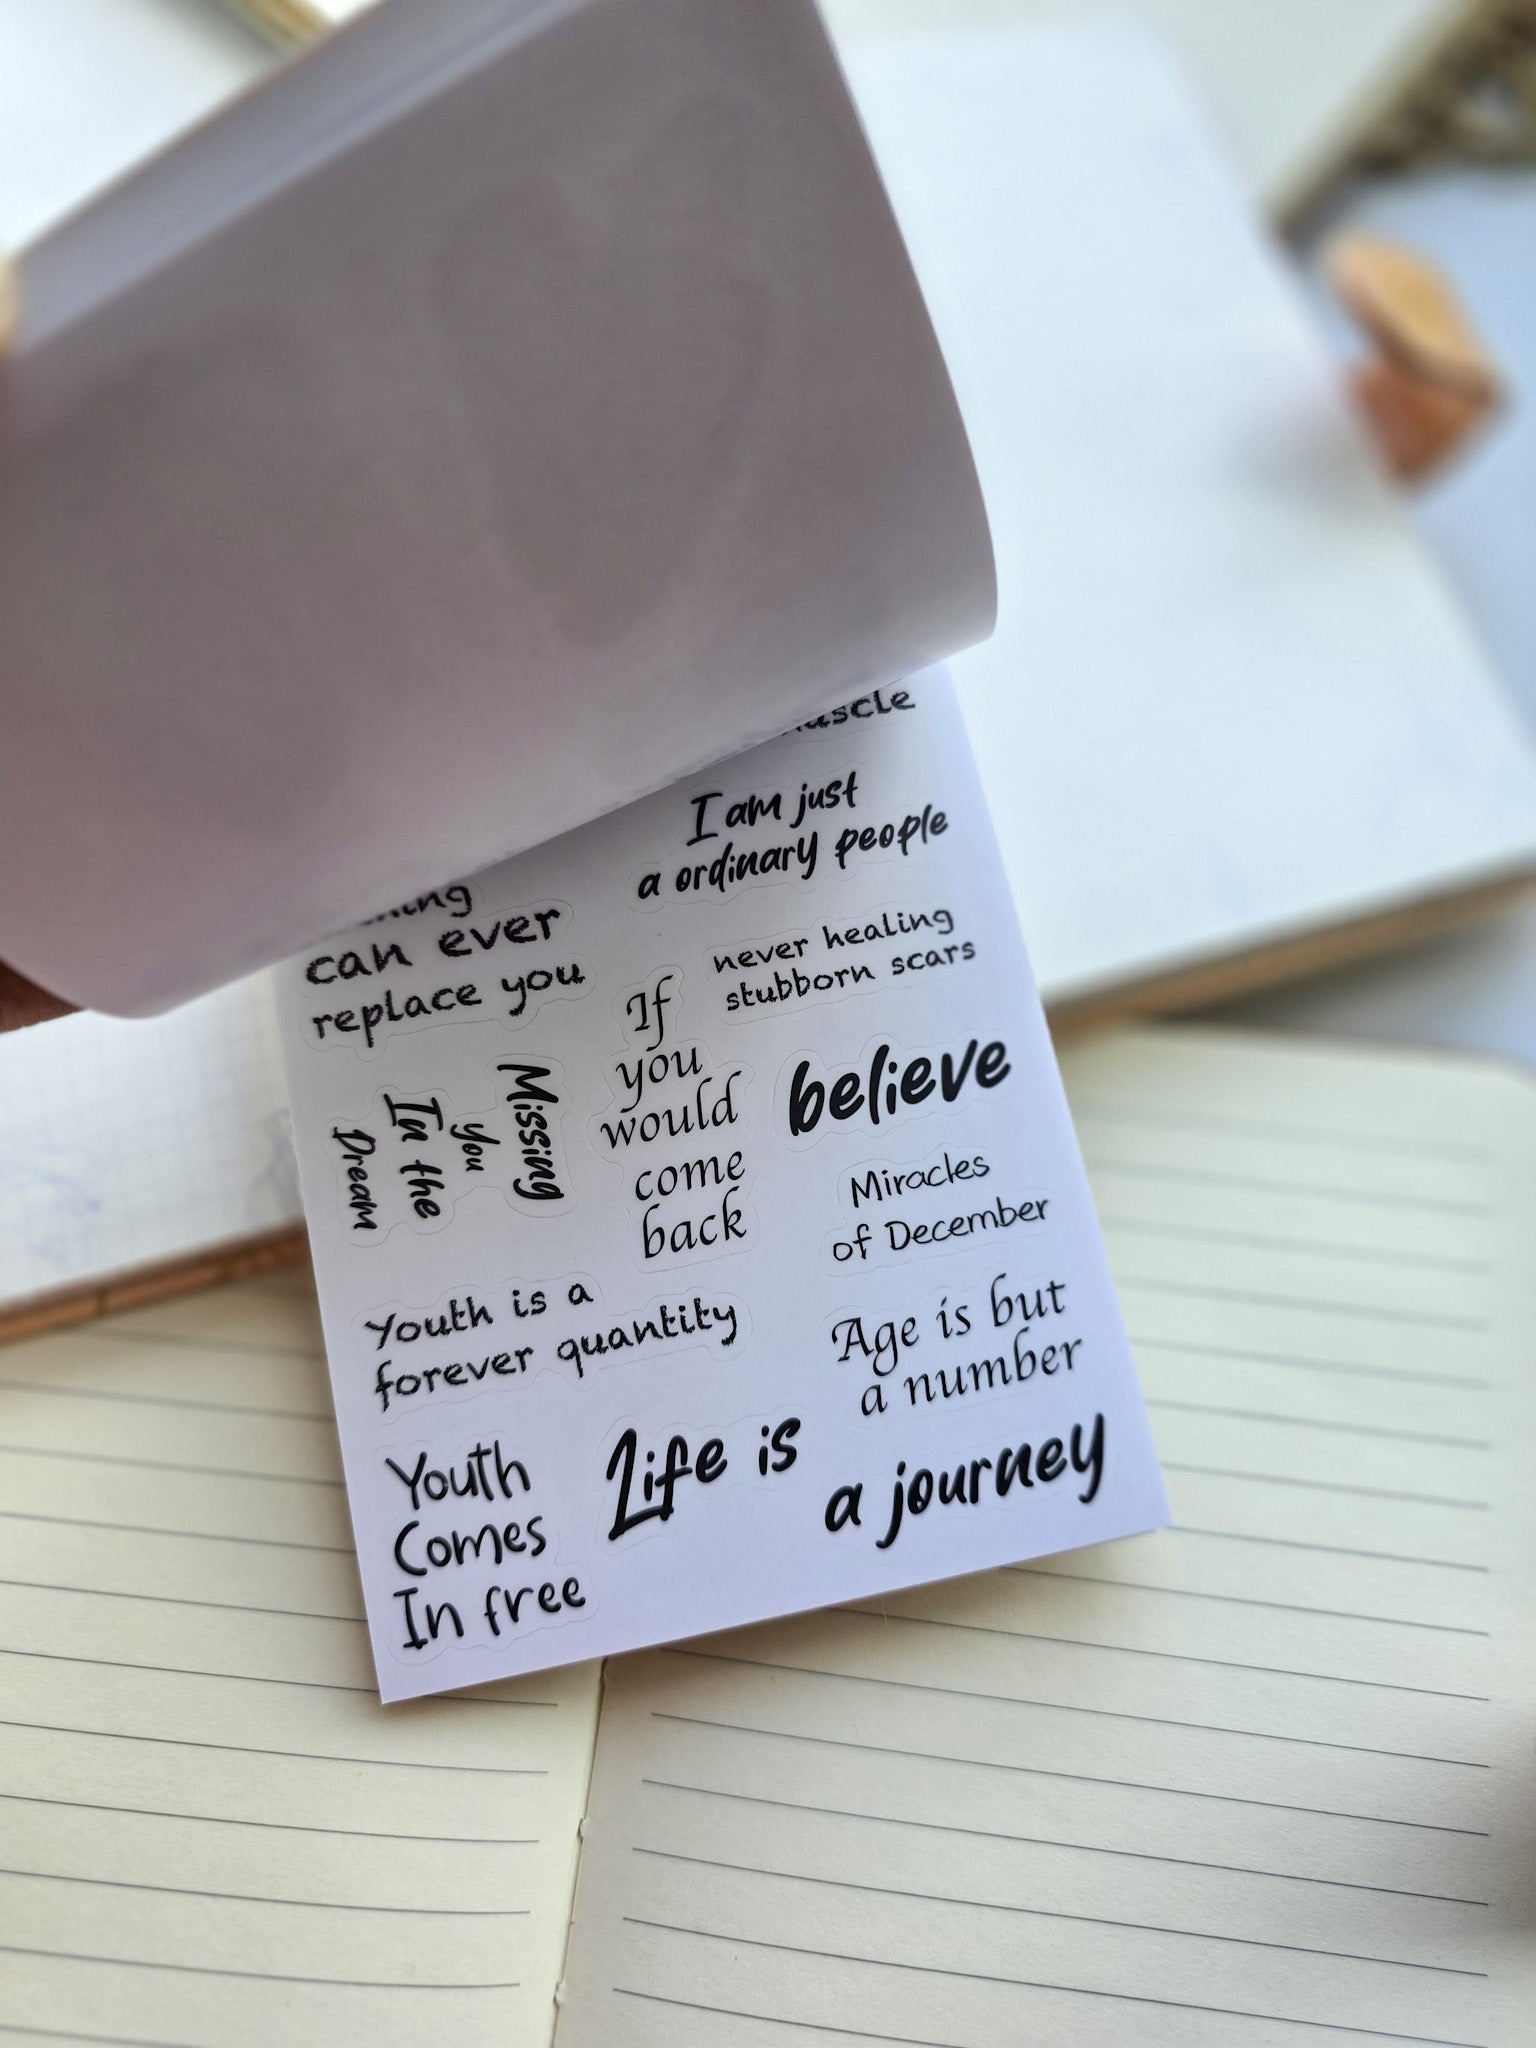 I am just
a ordinary people
can ever
replace you
never healing
stubborn scars
If
you
would
come
back
believe
Missing
You
In the
Dream
Miracles
of December
Youth is a
forever quantity
Age is but
a number
Youth
Comes
In free
Life is
a journey